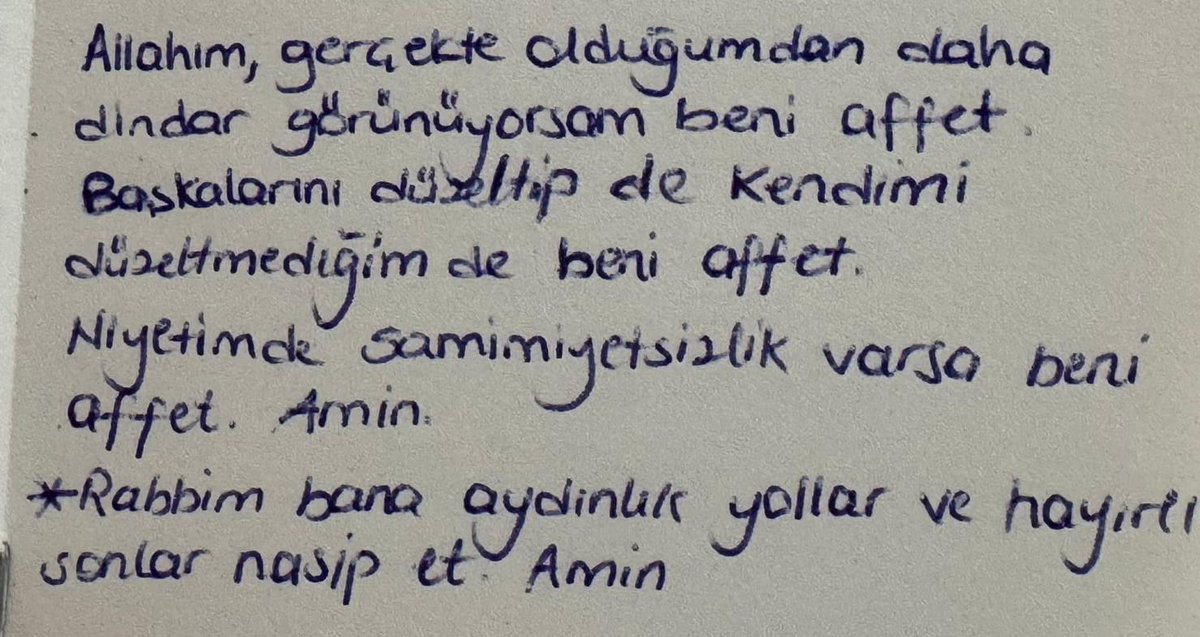 Allahım, gerçekte olduğumdan daha
dindar görünüyorsam beni affet.
Başkalarını düzeltip de kendimi
düzeltmediğim de beni affet.
Niyetimde samimiyetsizlik varsa beni
affet. Amin.
*Rabbim bana aydınlık yollar ve hayırlı
sonlar nasip et. Amin